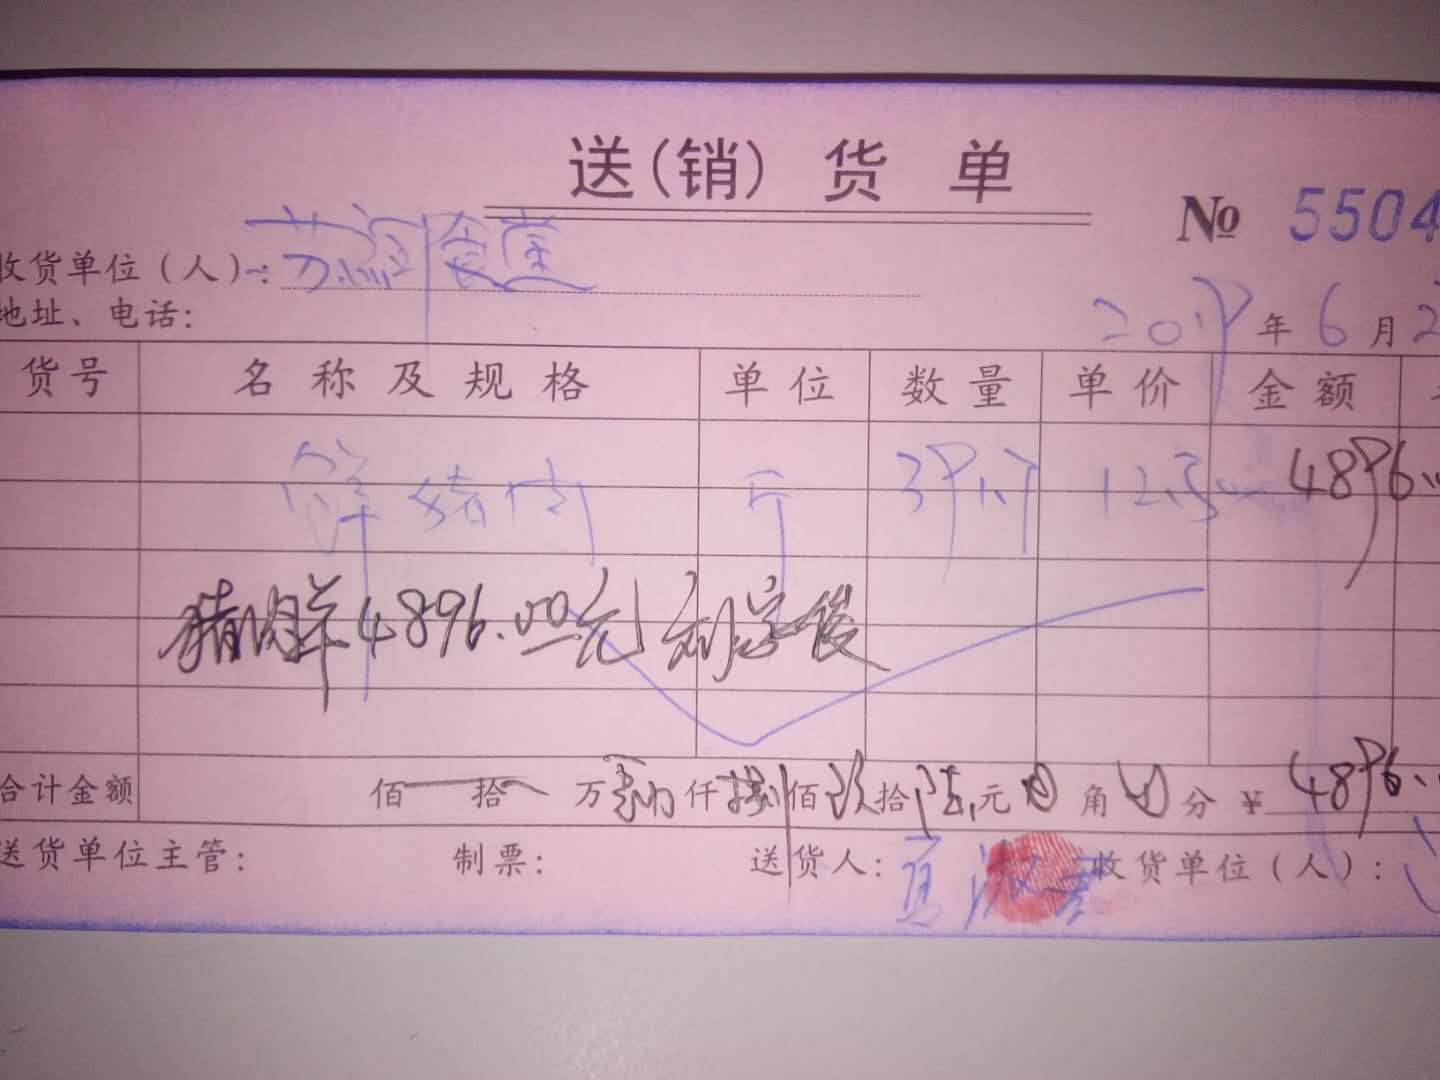 送(销)货单
№ 5504
收货单位(人):
地址、电话: 2019年6月2
货号 名称及规格 单位 数量 单价 金额
鲜猪肉 斤 391.7 12.50 4896.
猪肉 4896.00元
合计金额 佰 拾 万 肆仟捌佰玖拾陆元 角 分 ¥ 4896.
送货单位主管: 制票: 送货人: 收货单位(人):